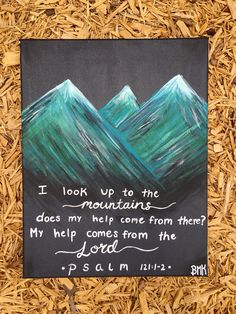 I look up to the
mountains
does my help come from there?
My help comes from the
Lord
• Psalm 121:1-2 •
BMK